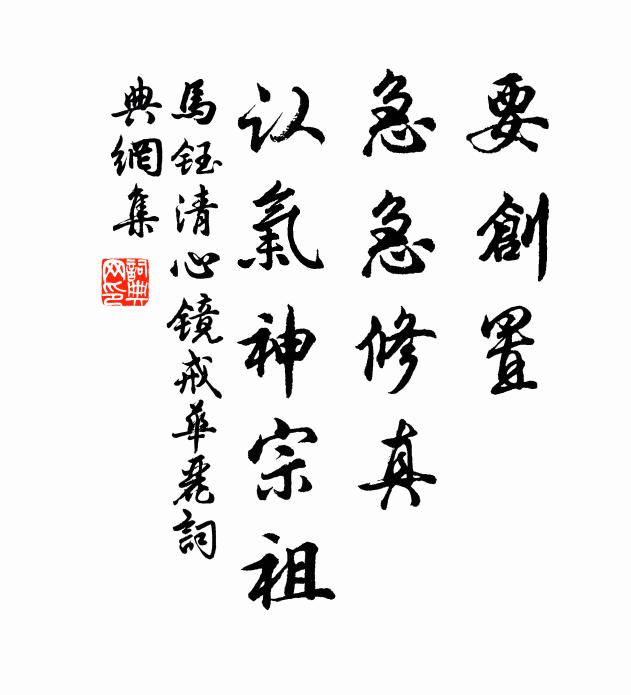 要創置
急急修真
认氣神宗祖
馬鈺清心镜戒華麗詞
典網集
詞典
网印